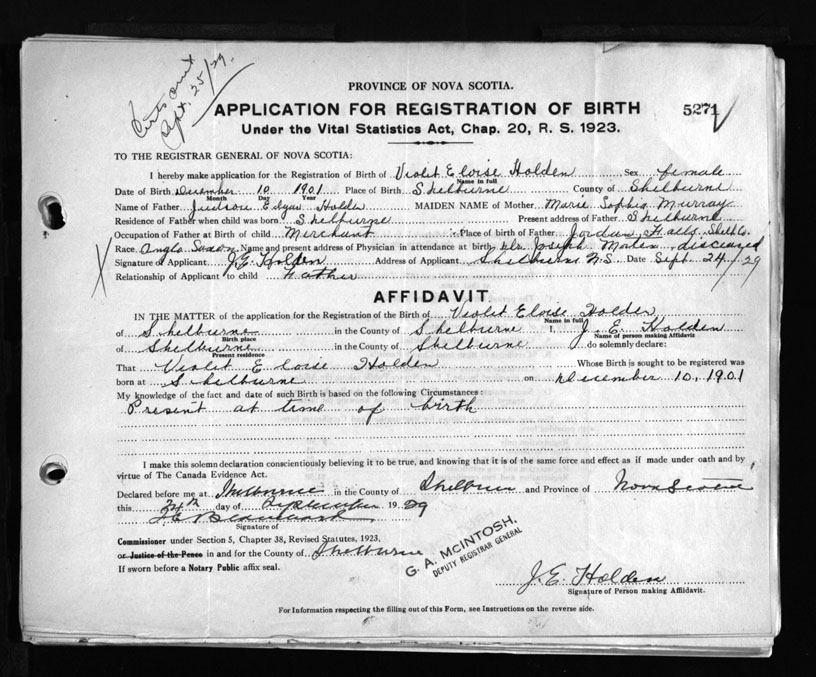 Certs out
Sept. 25/29.
PROVINCE OF NOVA SCOTIA.
APPLICATION FOR REGISTRATION OF BIRTH 5271
Under the Vital Statistics Act, Chap. 20, R. S. 1923.
TO THE REGISTRAR GENERAL OF NOVA SCOTIA:
I hereby make application for the Registration of Birth of Violet Eloise Holden Sex female
Name in full
Date of Birth December 10 1901 Place of Birth Shelburne County of Shelburne
Month Day Year
Name of Father Judson Edgar Holden MAIDEN NAME of Mother Marie Sophia Murray
Residence of Father when child was born Shelburne Present address of Father Shelburne
Occupation of Father at Birth of child Merchant Place of birth of Father Jordan Falls, Shelb Co.
Race Anglo Saxon Name and present address of Physician in attendance at birth Dr. Joseph Morton disceased
Signature of Applicant J.E. Holden Address of Applicant Shelburne N.S. Date Sept. 24/29
Relationship of Applicant to child Father
AFFIDAVIT
IN THE MATTER of the application for the Registration of the Birth of Violet Eloise Holden
Name in full
of Shelburne in the County of Shelburne I, J. E. Holden
Birth place Name of person making Affidavit
of Shelburne in the County of Shelburne do solemnly declare:
Present residence
That Violet Eloise Holden Whose Birth is sought to be registered was
born at Shelburne on December 10, 1901
My knowledge of the fact and date of such Birth is based on the following Circumstances:
Present at time of birth
I make this solemn declaration conscientiously believing it to be true, and knowing that it is of the same force and effect as if made under oath and by
virtue of The Canada Evidence Act.
Declared before me at Shelburne in the County of Shelburne and Province of Nova Scotia
this 24th day of September 1929
Signature of
Commissioner under Section 5, Chapter 38, Revised Statutes, 1923,
or Justice of the Peace in and for the County of Shelburne
If sworn before a Notary Public affix seal.
G. A. McINTOSH,
DEPUTY REGISTRAR GENERAL
J. E. Holden
Signature of Person making Affidavit.
For Information respecting the filling out of this Form, see Instructions on the reverse side.